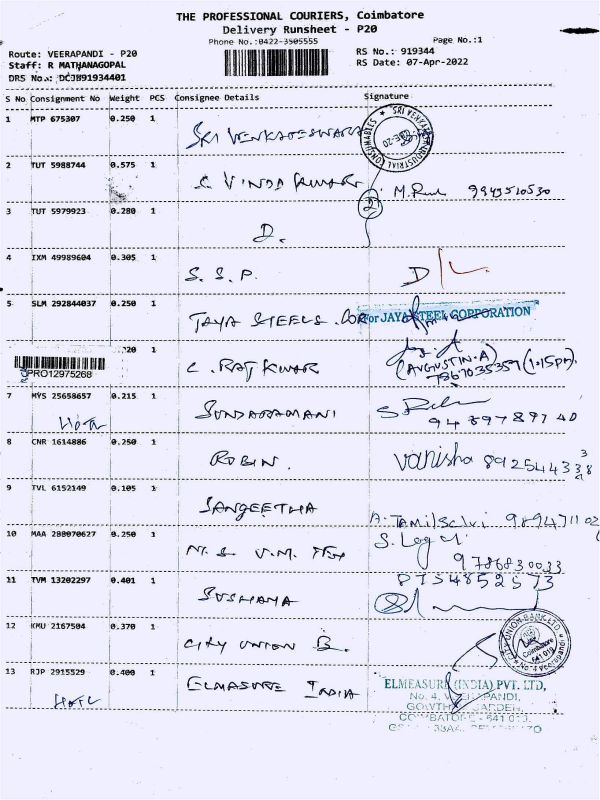 THE PROFESSIONAL COURIERS, Coimbatore
Delivery Runsheet - P20
Phone No.:0422-3505555
Page No.:1
Route: VEERAPANDI - P20
RS No.: 919344
Staff: R MATHANAGOPAL
RS Date: 07-Apr-2022
DRS No.: DCJB91934401
S No Consignment No Weight PCS Consignee Details Signature
1 MTP 675307 0.250 1 SRI VENKATESWARA
SRI VENKATESWARA INDUSTRIAL CONSUMABLES
2 TUT 5988744 0.575 1 C VINDA KUMAR M. 9943510530
3 TUT 5979923 0.280 1 D.
4 IXM 49989604 0.305 1 S. S. P. D
5 SLM 292844037 0.250 1 JAYA STEELS. COR For JAYA STEEL CORPORATION
20 1 C. RAJ KUMAR (AUGUSTIN.A) (1.15pm)
PRO12975268 7867035359
7 MYS 25658657 0.215 1 SUNDARAMANI
9489789740
8 CNR 1614886 0.250 1 ROBIN. Vanisha 8925443338
9 TVL 6152149 0.105 1 SANGEETHA A. Tamilselvi 989471102
10 MAA 288070627 0.250 1 M. S. V. M. S. Logu
9786830033
11 TVM 13202297 0.401 1 SUSHAMA 8754852573
12 KMU 2167504 0.370 1 CITY UNION B.
CITY UNION BANK LTD. Coimbatore 641 019
13 RJP 2915529 0.400 1 ELMASURE INDIA ELMEASURE (INDIA) PVT. LTD,
No. 4, VEERAPANDI,
GOWTHAM GARDEN,
COIMBATORE - 641 019.